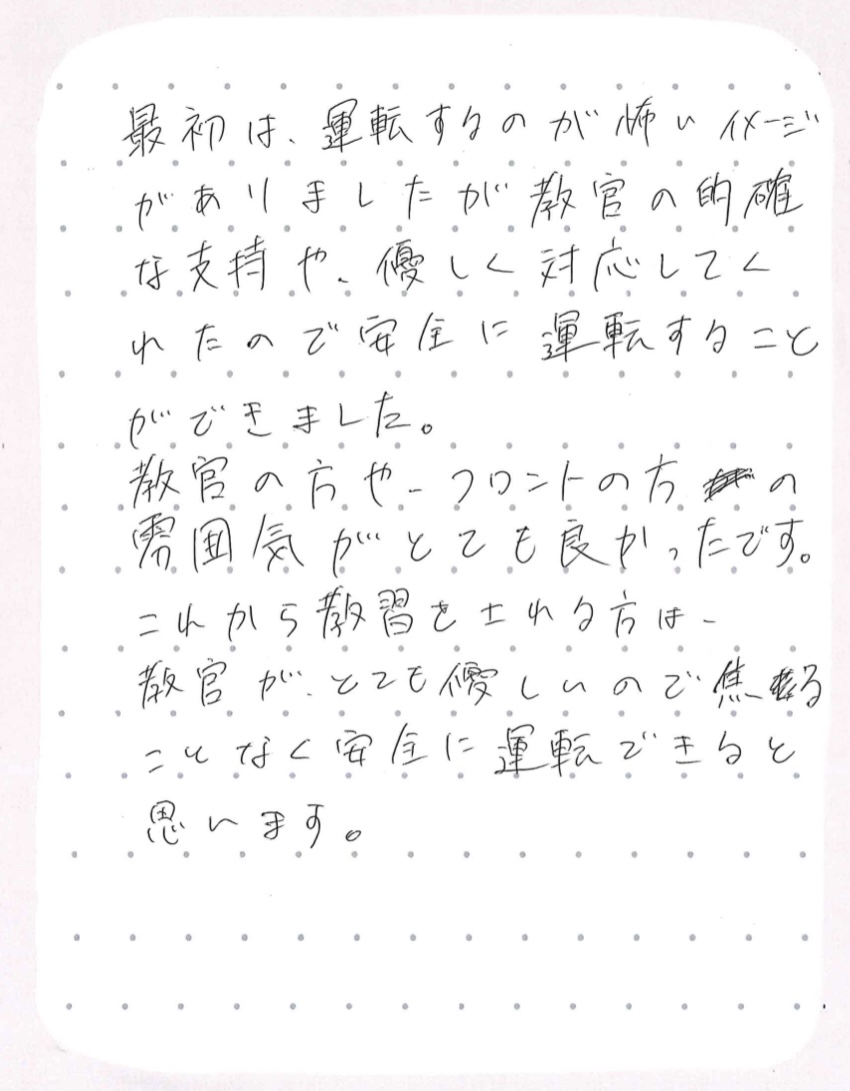 最初は、運転するのが怖いイメージ
がありましたが教官の的確
な支持や、優しく対応してく
れたので安全に運転すること
ができました。
教官の方や、フロントの方の
雰囲気がとても良かったです。
これから教習をされる方は、
教官が、とても優しいので焦る
ことなく安全に運転できると
思います。